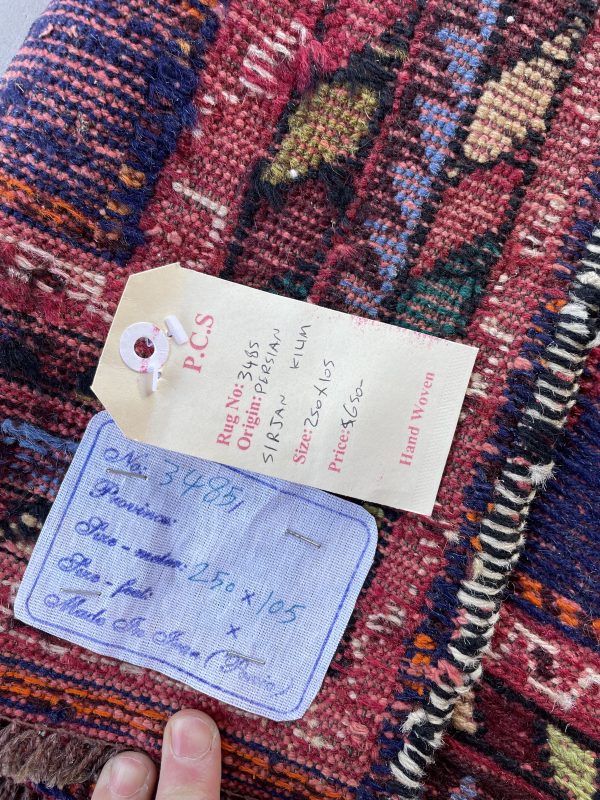 P.C.S
Rug No: 3485
Origin: PERSIAN
SIRJAN KILIM
Size: 250X105
Price: $650-
Hand Woven
No: 3485,
Province:
Size - meter: 250 x 105
Size - foot: x
Made In Iran (Persia)